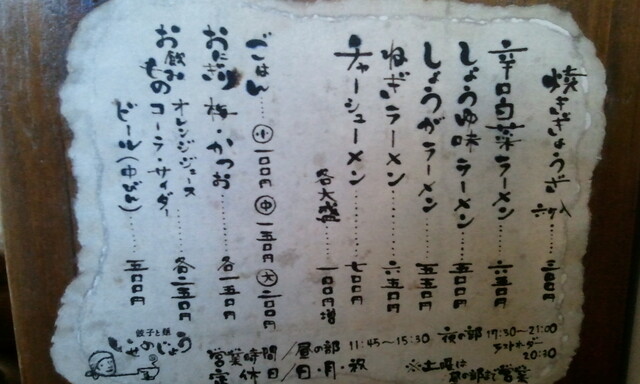 焼きぎょうざ 六入 …… 三〇〇円
辛口白菜ラーメン …… 六五〇円
しょうゆ味ラーメン …… 五〇〇円
しょうがラーメン …… 五五〇円
ねぎラーメン …… 六五〇円
チャーシューメン …… 七〇〇円
各大盛 …… 一〇〇円増
ごはん …… 小 一〇〇円 中 一五〇円 大 二〇〇円
おにぎり 梅・かつお …… 各一五〇円
お飲みもの オレンジジュース
コーラ・サイダー …… 各二五〇円
ビール(中びん) …… 五〇〇円
餃子と麺
営業時間/昼の部 11:45〜15:30 夜の部 17:30〜21:00
ラストオーダー 20:30
定休日/日・月・祝 ※土曜は昼の部まで営業